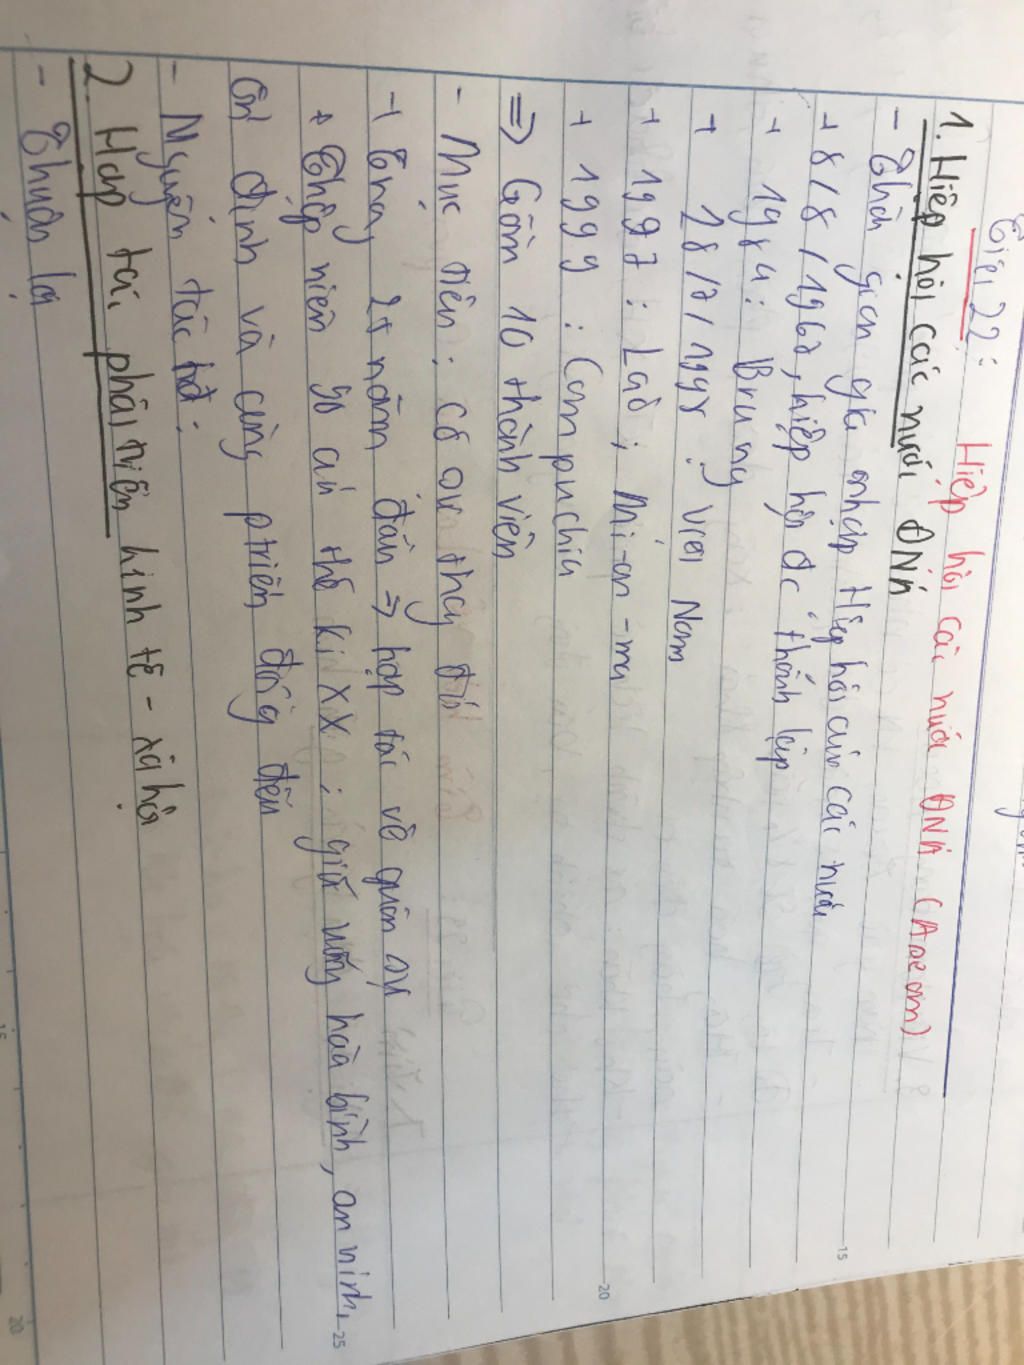 Tiết 22: Hiệp hội các nước ĐNÁ (Asean)
1. Hiệp hội các nước ĐNÁ
- Thời gian gia nhập Hiệp hội của các nước
+ 8/8/1967, hiệp hội đc thành lập
+ 1984: Bruney
+ 28/7/1995: Việt Nam
+ 1997: Lào; Mi-an-ma
+ 1999: Campuchia
=> Gồm 10 thành viên
- Mục tiêu: có sự thay đổi
+ Trong 25 năm đầu => hợp tác về quân sự
+ Thập niên 90 của thế kỉ XX: giữ vững hòa bình, an ninh,
ổn định và cùng ptriển đồng đều
- Nguyên tắc hđ:
2. Hợp tác phát triển kinh tế - xã hội
- Thuận lợi